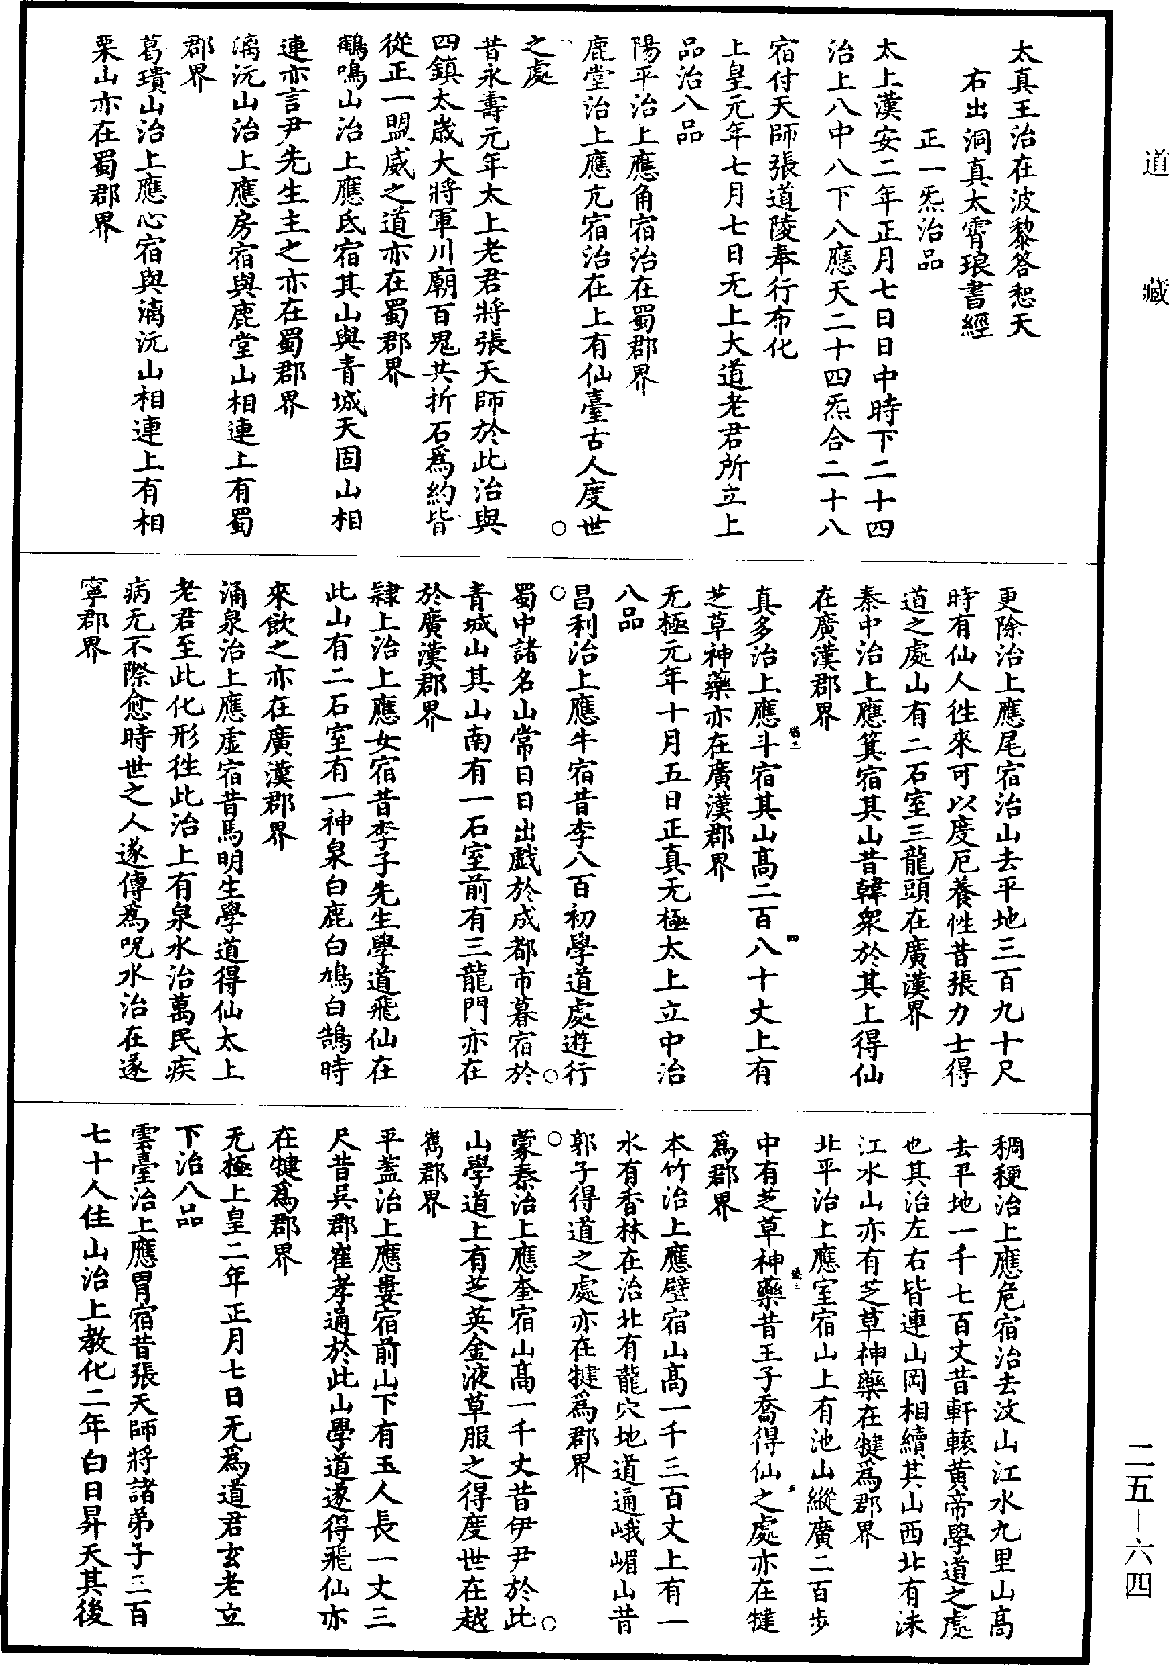 道藏
太真王治在波黎答惒天
右出洞真太霄琅書經
正一炁治品
太上漢安二年正月七日日中時下二十四
治上八中八下八應天二十四炁合二十八
宿付天師張道陵奉行布化
上皇元年七月七日无上大道老君所立上
品治八品
陽平治上應角宿治在蜀郡界
鹿堂治上應亢宿治在上有仙臺古人度世
之處
昔永壽元年太上老君將張天師於此治與
四鎮太歲大將軍川廟百鬼共折石為約皆
從正一盟威之道亦在蜀郡界
鶴鳴山治上應氐宿其山與青城天固山相
連亦言尹先生主之亦在蜀郡界
漓沅山治上應房宿與鹿堂山相連上有蜀
郡界
葛璝山治上應心宿與漓沅山相連上有相
栗山亦在蜀郡界
更除治上應尾宿治山去平地三百九十尺
時有仙人徃來可以度厄養性昔張力士得
道之處山有二石室三龍頭在廣漢界
秦中治上應箕宿其山昔韓衆於其上得仙
在廣漢郡界
真多治上應斗宿其山高二百八十丈上有
芝草神藥亦在廣漢郡界
无極元年十月五日正真无極太上立中治
八品
昌利治上應牛宿昔李八百初學道處遊行
蜀中諸名山常日日出戲於成都市暮宿於
青城山其山南有一石室前有三龍門亦在
於廣漢郡界
隸上治上應女宿昔李子先生學道飛仙在
此山有二石室有一神泉白鹿白鳩白鵠時
來飲之亦在廣漢郡界
涌泉治上應虛宿昔馬明生學道得仙太上
老君至此化形徃此治上有泉水治萬民疾
病无不際愈時世之人遂傳為呪水治在遂
寧郡界
稠稉治上應危宿治去汶山江水九里山高
去平地一千七百丈昔軒轅黃帝學道之處
也其治左右皆連山岡相續其山西北有沬
江水山亦有芝草神藥在犍為郡界
北平治上應室宿山上有池山縱廣二百步
中有芝草神藥昔王子喬得仙之處亦在犍
為郡界
本竹治上應壁宿山高一千三百丈上有一
水有香林在治北有龍穴地道通峨嵋山昔
郭子得道之處亦在犍為郡界
蒙秦治上應奎宿山高一千丈昔伊尹於此
山學道上有芝英金液草服之得度世在越
嶲郡界
平蓋治上應婁宿前山下有玉人長一丈三
尺昔吳郡崔孝通於此山學道遂得飛仙亦
在犍為郡界
无極上皇二年正月七日无為道君玄老立
下治八品
雲臺治上應胃宿昔張天師將諸弟子三百
七十人住山治上教化二年白日昇天其後
二五-六四